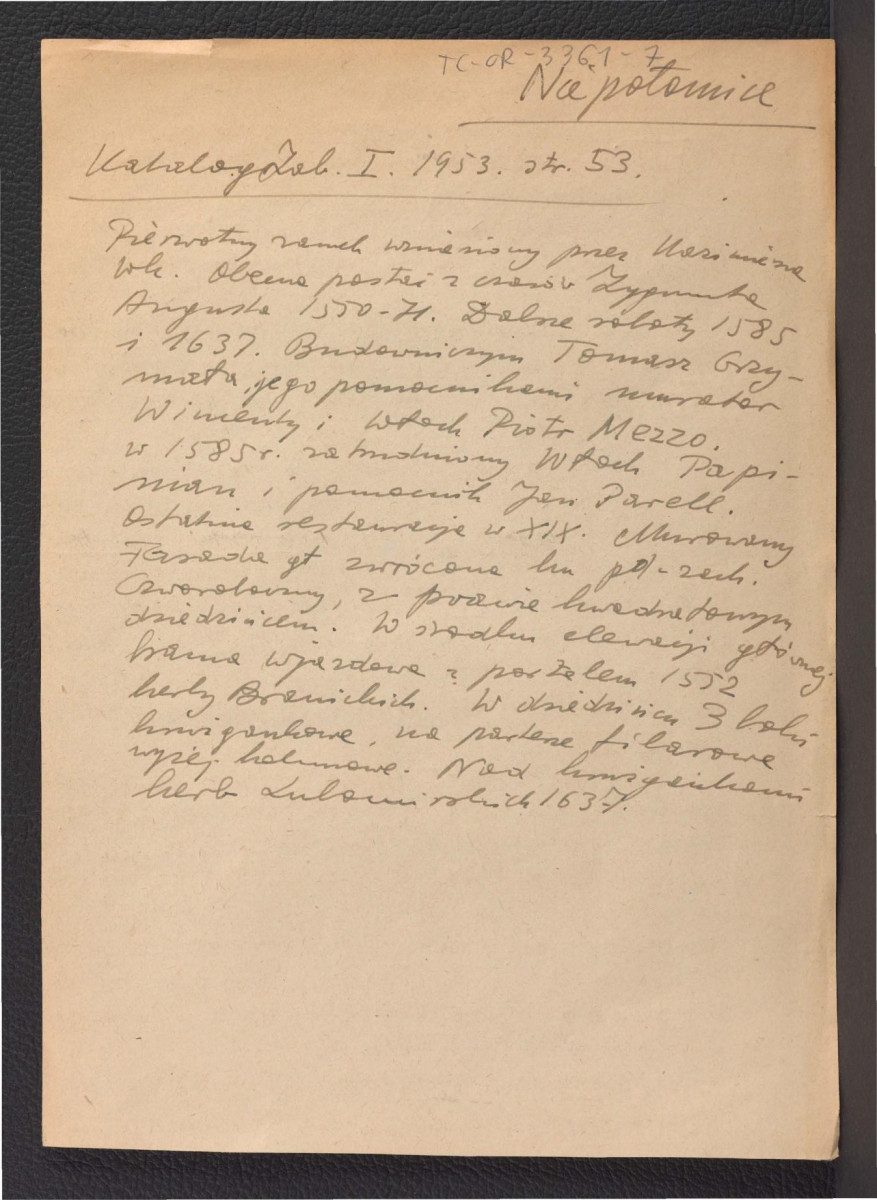 TC-OR-3361-7
Niepołomice
Katalog Zab. I. 1953. str. 53.
Pierwotny zamek wzniesiony przez Kazimierza
Wk. Obecna postać z czasów Zygmunta
Augusta 1550-71. Dalsze roboty 1585
i 1637. Budowniczym Tomasz Grzy-
mała, jego pomocnikami murator
Wincenty i Włoch Piotr Mezzo.
w 1585 r. zatrudniony Włoch Papi-
nian i pomocnik Jan Parell.
Ostatnia restauracja w XIX. Murowany
Fasada gł zwrócona ku pł-zach.
Czworoboczny, z prawie kwadratowym
dziedzińcem. W środku elewacji głównej
brama wjazdowa z portalem 1552
herby Branickich. W dziedzińcu 3 boki
krużgankowe, na parterze filarowe
wyżej kolumnowe. Nad krużgankami
herb Lubomirskich 1637.